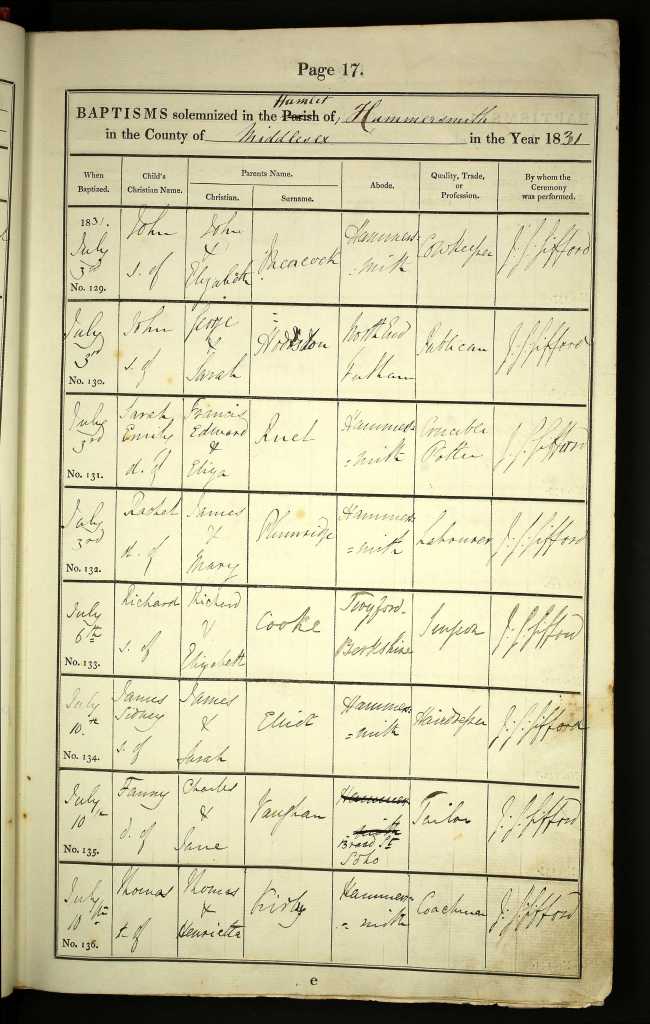 Page 17.
Hamlet
BAPTISMS solemnized in the Parish of Hammersmith
in the County of Middlesex in the Year 1831
When Baptized. Child's Christian Name. Parents Name. Abode. Quality, Trade, or Profession. By whom the Ceremony was performed.
Christian. Surname.
1831. July 3rd No. 129. John s. of John & Elizabeth Peacock Hammer=smith Cowkeeper J. S. Gifford
July 3rd No. 130. John s. of George & Sarah Hodsdon North End Fulham Publican J. S. Gifford
July 3rd No. 131. Sarah Emily d. of Francis Edward & Eliza Ruel Hammer=smith Crucible Potter J. S. Gifford
July 3rd No. 132. Rachel d. of James & Mary Plumridge Hammer=smith Labourer J. S. Gifford
July 6th No. 133. Richard s. of Richard & Elizabeth Cooke Twyford Berkshire Surgeon J. S. Gifford
July 10th No. 134. James Sidney s. of James & Sarah Eliot Hammer=smith Hairdresser J. S. Gifford
July 10th No. 135. Fanny d. of Charles & Jane Vaughan Hammersmith Broad St Soho Tailor J. S. Gifford
July 10th No. 136. Thomas s. of Thomas & Henrietta Kirby Hammer=smith Coachman J. S. Gifford
e